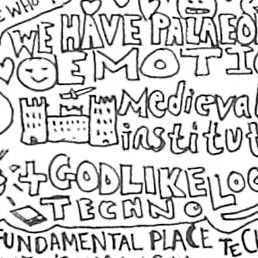 E WHO
WE HAVE PALAEO
EMOTIO
Medieval
institut
+ GODLIKE LOO
TECHNO
FUNDAMENTAL PLACE TECH